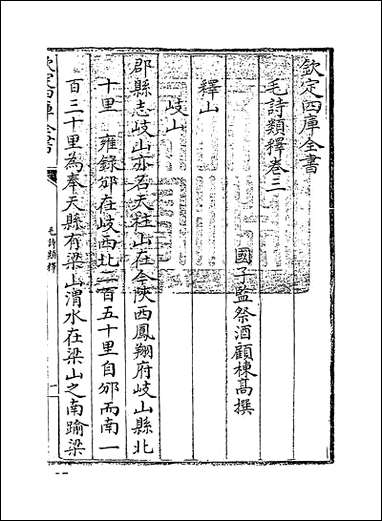 欽定四庫全書
毛詩類釋卷三
國子監祭酒顧棟高撰
釋山
岐山
郡縣志岐山亦名天柱山在今陝西鳳翔府岐山縣北
十里 雍錄邠在岐西北二百五十里自邠而南一
百三十里為奉天縣有梁山渭水在梁山之南踰梁
欽定四庫全書
毛詩類釋
一